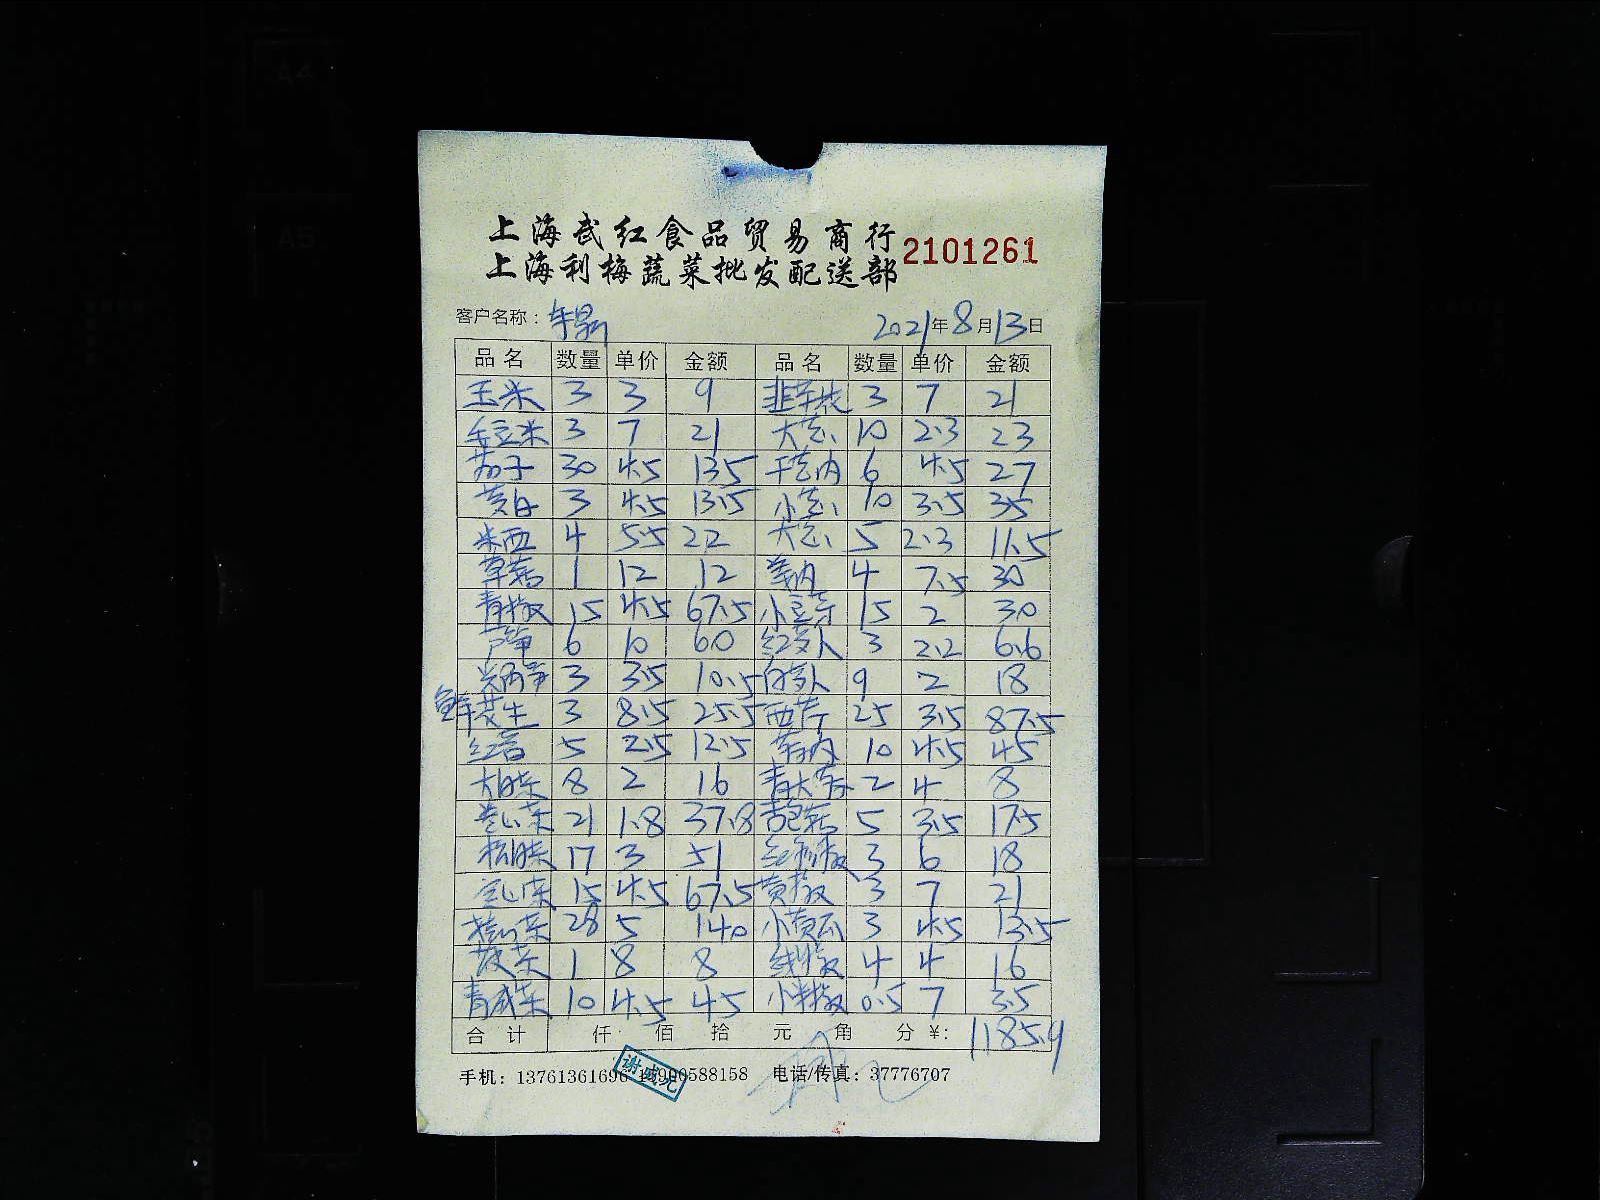 上海武红食品贸易商行
上海利梅蔬菜批发配送部
2101261
客户名称： 2021年8月13日
品名 数量 单价 金额 品名 数量 单价 金额
玉米 3 3 9 韭菜花 3 7 21
毛豆米 3 7 21 大葱 10 2.3 23
茄子 30 4.5 135 干葱肉 6 4.5 27
黄白 3 4.5 13.5 小葱 10 3.5 35
米西 4 5.5 22 大葱 5 2.3 11.5
草菇 1 12 12 姜肉 4 7.5 30
青椒 15 4.5 67.5 小豆芽 15 2 30
芦笋 6 10 60 红萝卜 3 2.2 6.6
3 3.5 10.5 白萝卜 9 2 18
鲜花生 3 8.5 25.5 西芹 25 3.5 87.5
5 2.5 12.5 10 4.5 45
大白菜 8 2 16 2 4 8
卷心菜 21 1.8 37.8 5 3.5 17.5
17 3 51 3 6 18
空心菜 15 4.5 67.5 黄椒 3 7 21
28 5 140 小黄瓜 3 4.5 13.5
菠菜 1 8 8 线椒 4 4 16
青咸菜 10 4.5 45 小米椒 0.5 7 3.5
合计 仟 佰 拾 元 角 分 ¥: 1185.9
手机：13761361696 588158 电话/传真：37776707